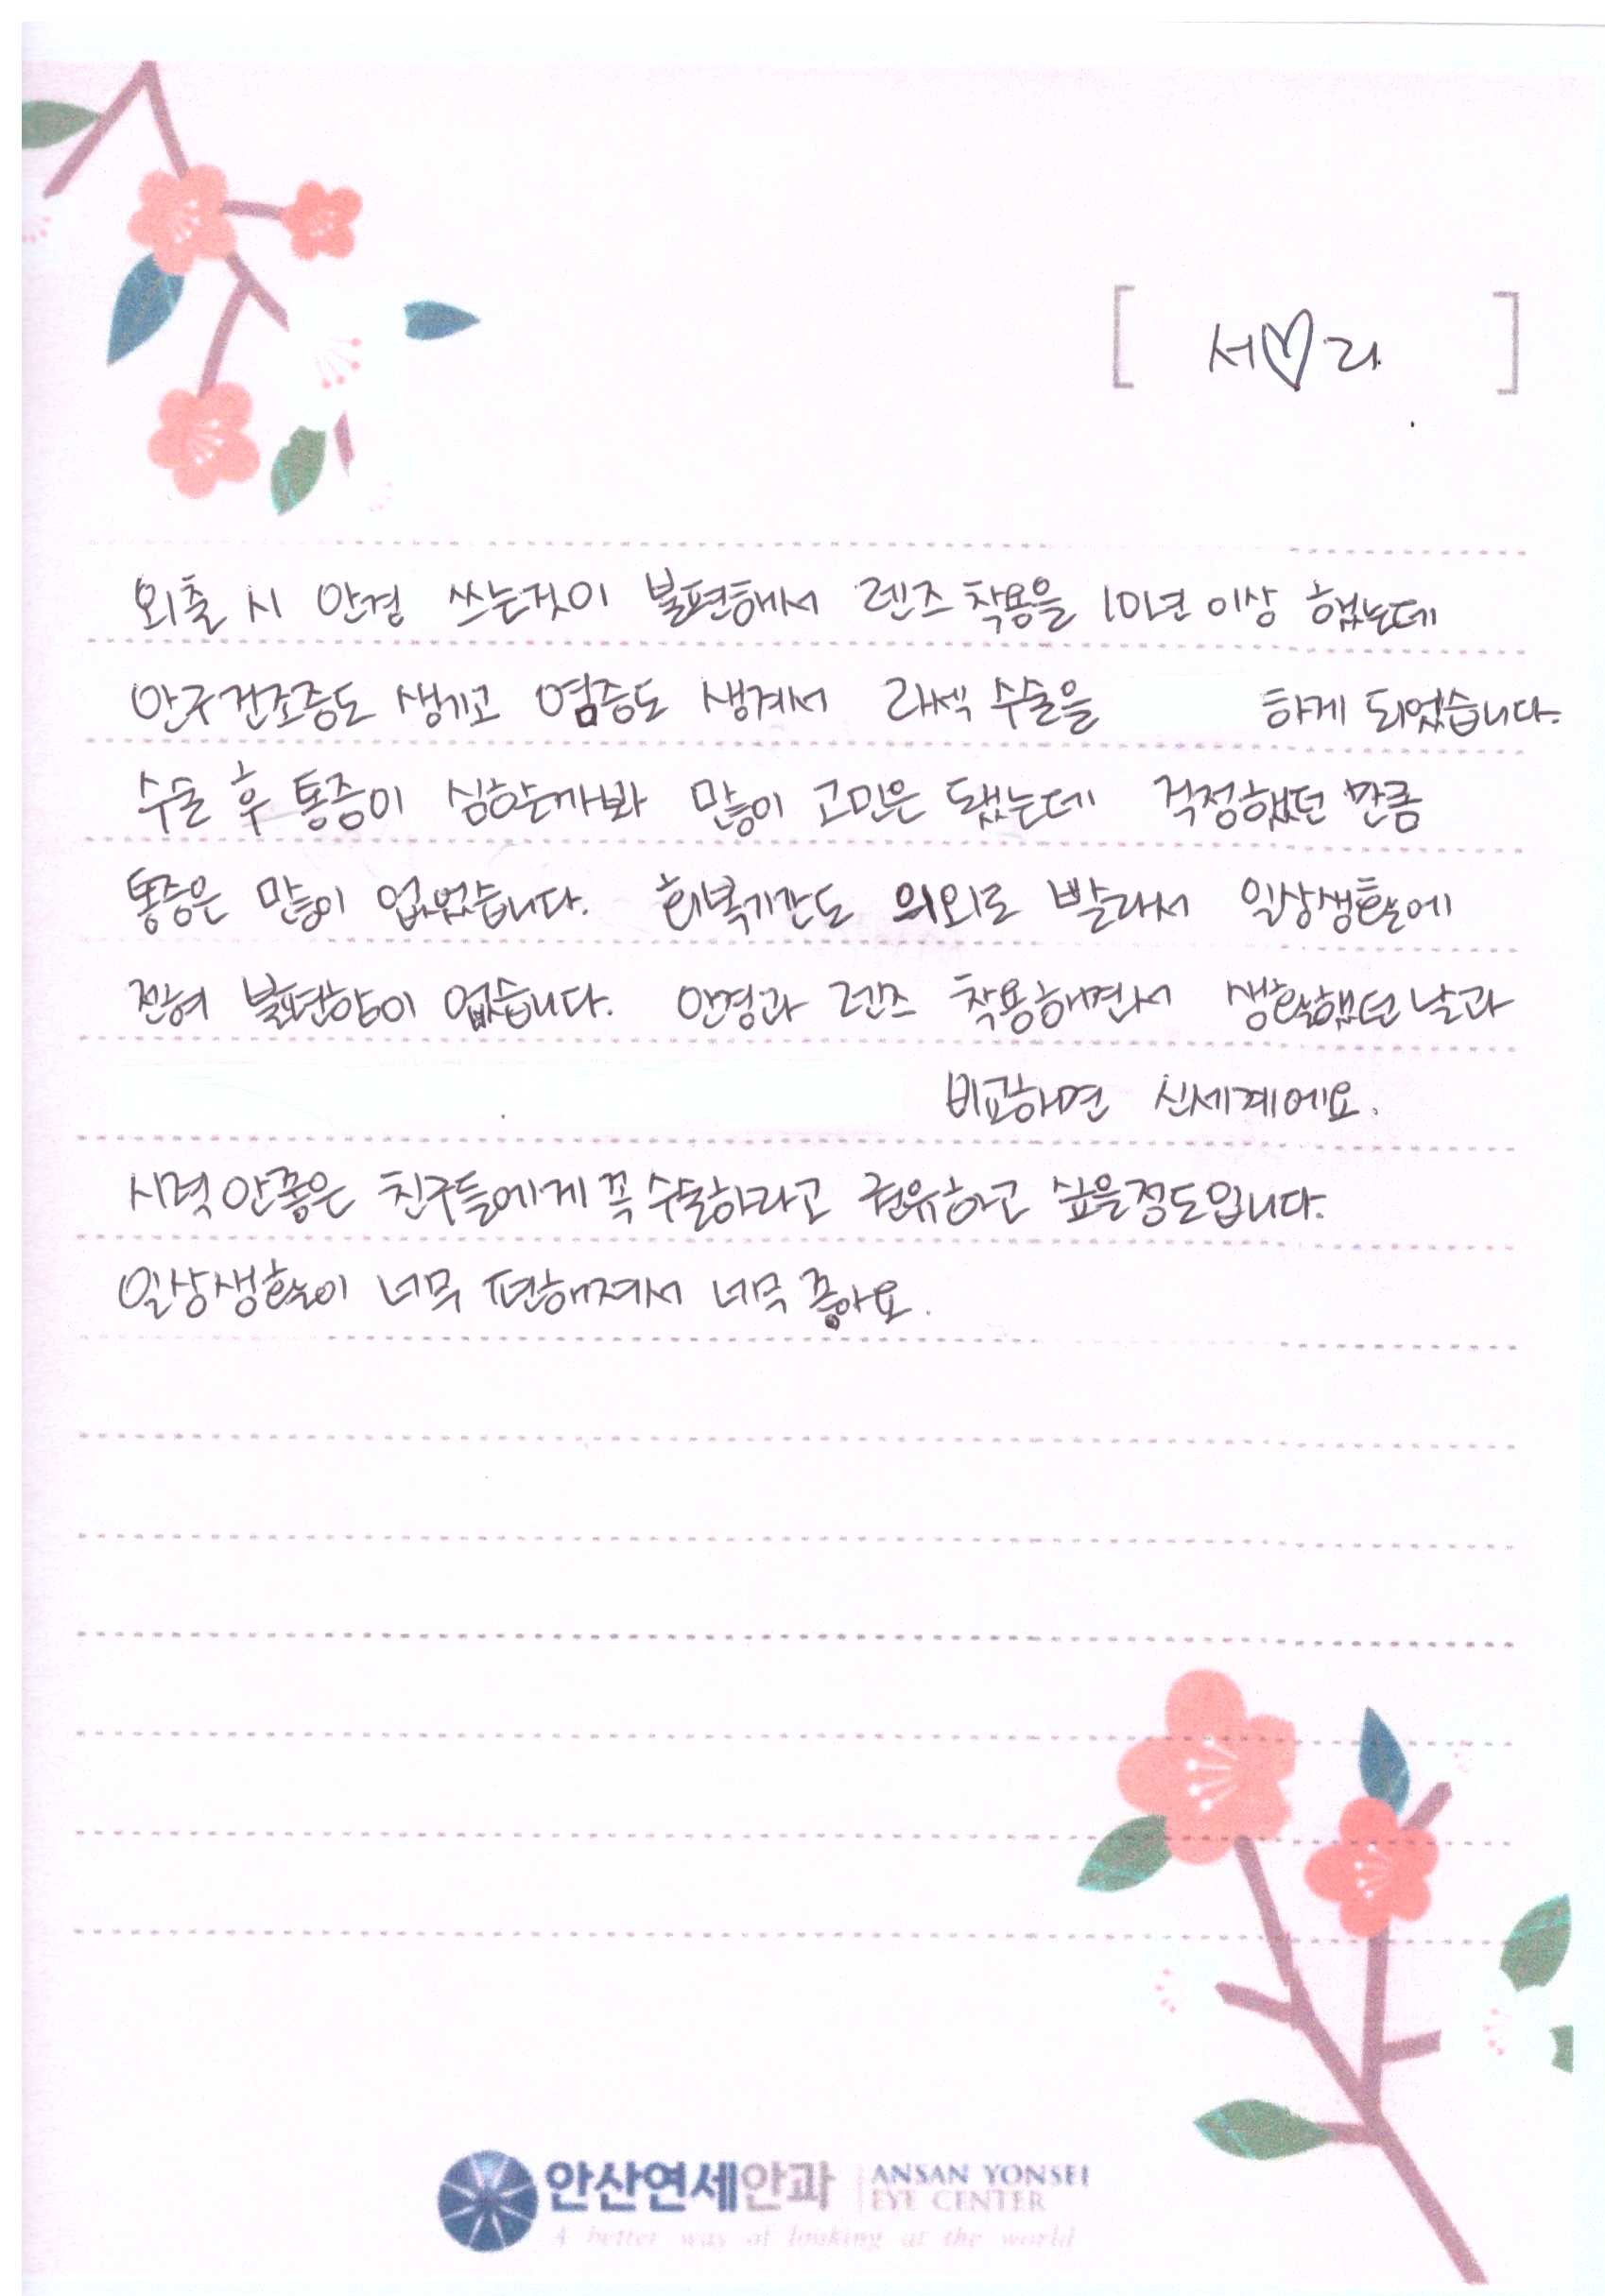 [ 서♡라 ]
외출 시 안경 쓰는것이 불편해서 렌즈 착용을 10년 이상 했는데
안구건조증도 생기고 염증도 생겨서 라섹 수술을 하게 되었습니다.
수술 후 통증이 심할까봐 많이 고민은 됐는데 걱정했던 만큼
통증은 많이 없었습니다. 회복기간도 의외로 빨라서 일상생활에
전혀 불편함이 없습니다. 안경과 렌즈 착용하면서 생활했던 날과
비교하면 신세계에요.
시력 안좋은 친구들에게 꼭 수술하라고 권유하고 싶을정도입니다.
일상생활이 너무 편해져서 너무 좋아요.
안산연세안과 ANSAN YONSEI
EYE CENTER
A better way of looking at the world